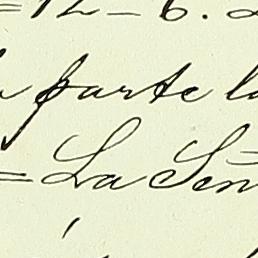 =12-6.
parte l
= La Sen